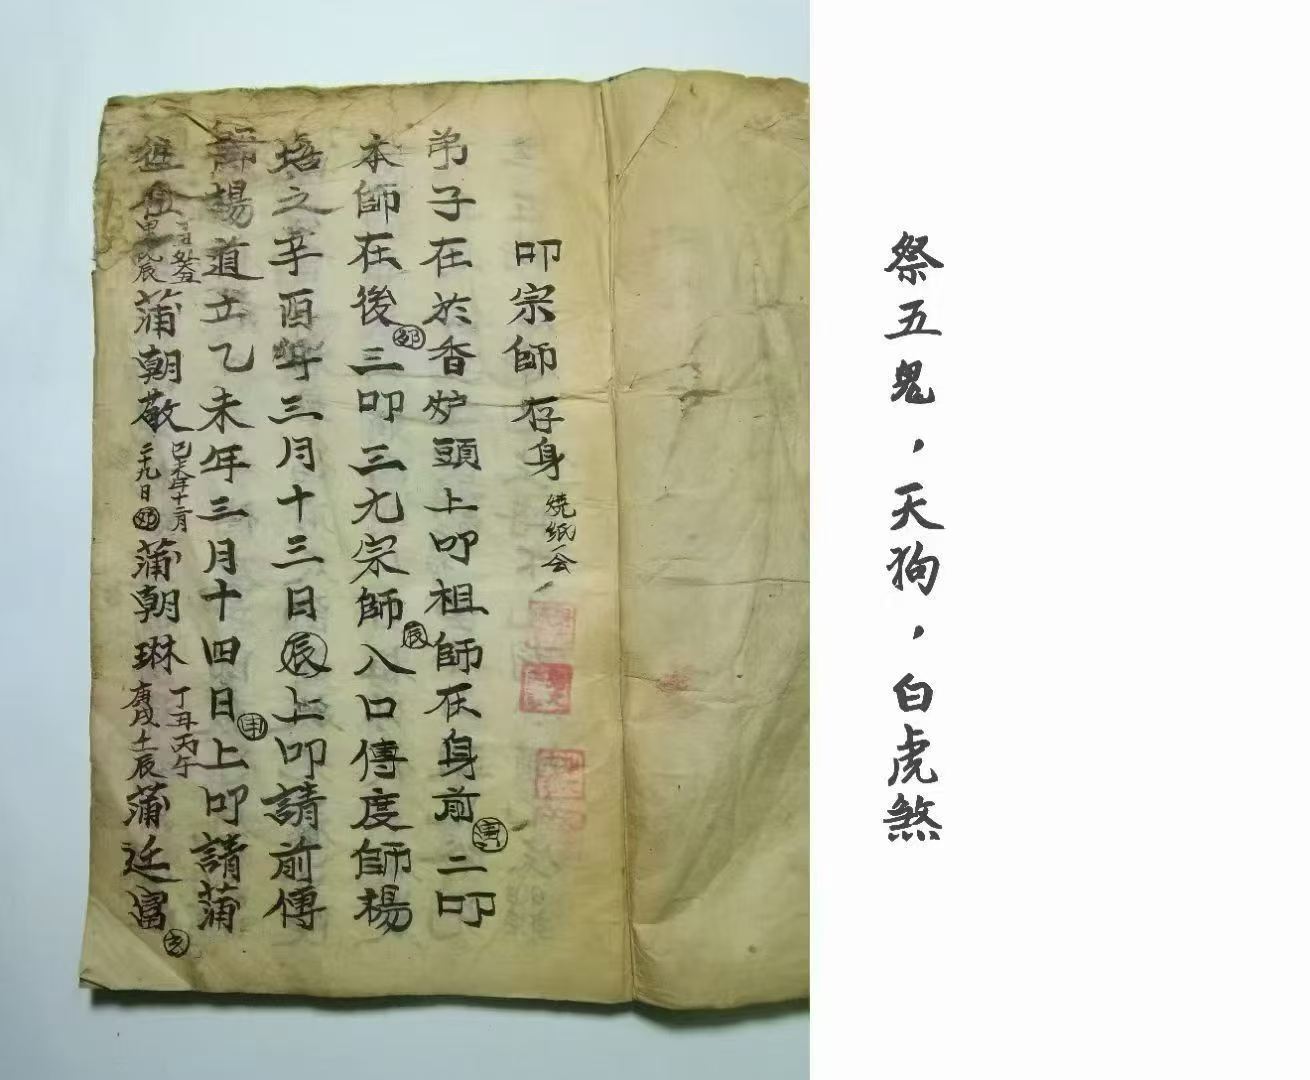 祭五鬼，天狗，白虎煞
叩宗師存身 燒紙一会
弟子在於香炉頭上叩祖師在身前二叩
本師在後三叩三九宗師八口傳度師楊
培之辛酉年三月十三日辰上叩請前傳
師楊道立乙未年三月十四日申上叩請蒲
蒲朝敬 己未年十二月二十九日 蒲朝琳 丁丑丙午庚戌壬辰 蒲廷富